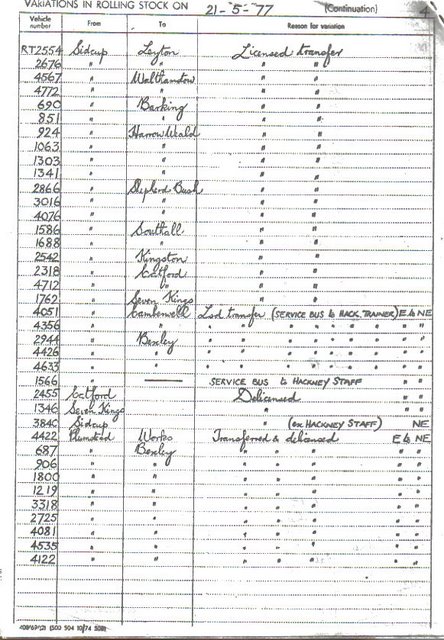 VARIATIONS IN ROLLING STOCK ON 21-5-77 (Continuation)
Vehicle number From To Reason for variation
RT2554 Sidcup Leyton Licensed transfer
2676 " " " "
4567 " Walthamstow " "
4772 " " " "
690 " Barking " "
851 " " " "
924 " Harrow Weald " "
1063 " " " "
1303 " " " "
1341 " " " "
2866 " Shepherd Bush " "
3016 " " " "
4076 " " " "
1586 " Southall " "
1688 " " " "
2542 " Kingston " "
2318 " Catford " "
4712 " " " "
1762 " Seven Kings " "
4051 " Camberwell Lsd transfer (SERVICE BUS to HACK. TRAINER) E to NE
4356 " " " " " " " " " " "
2944 " Bexley " " " " " " " " "
4426 " " " " " " " " " " "
4633 " " " " " " " " " " "
1566 " — SERVICE BUS to HACKNEY STAFF " "
2455 Catford Delicensed " "
1346 Seven Kings " " "
3840 Sidcup " (ex HACKNEY STAFF) NE
4422 Plumstead Works Transferred & delicensed E to NE
687 " Bexley " " " " "
906 " " " " " " "
1800 " " " " " " "
1219 " " " " " " "
3318 " " " " " " "
2725 " " " " " " "
4081 " " " " " " "
4535 " " " " " " "
4122 " " " " " " "